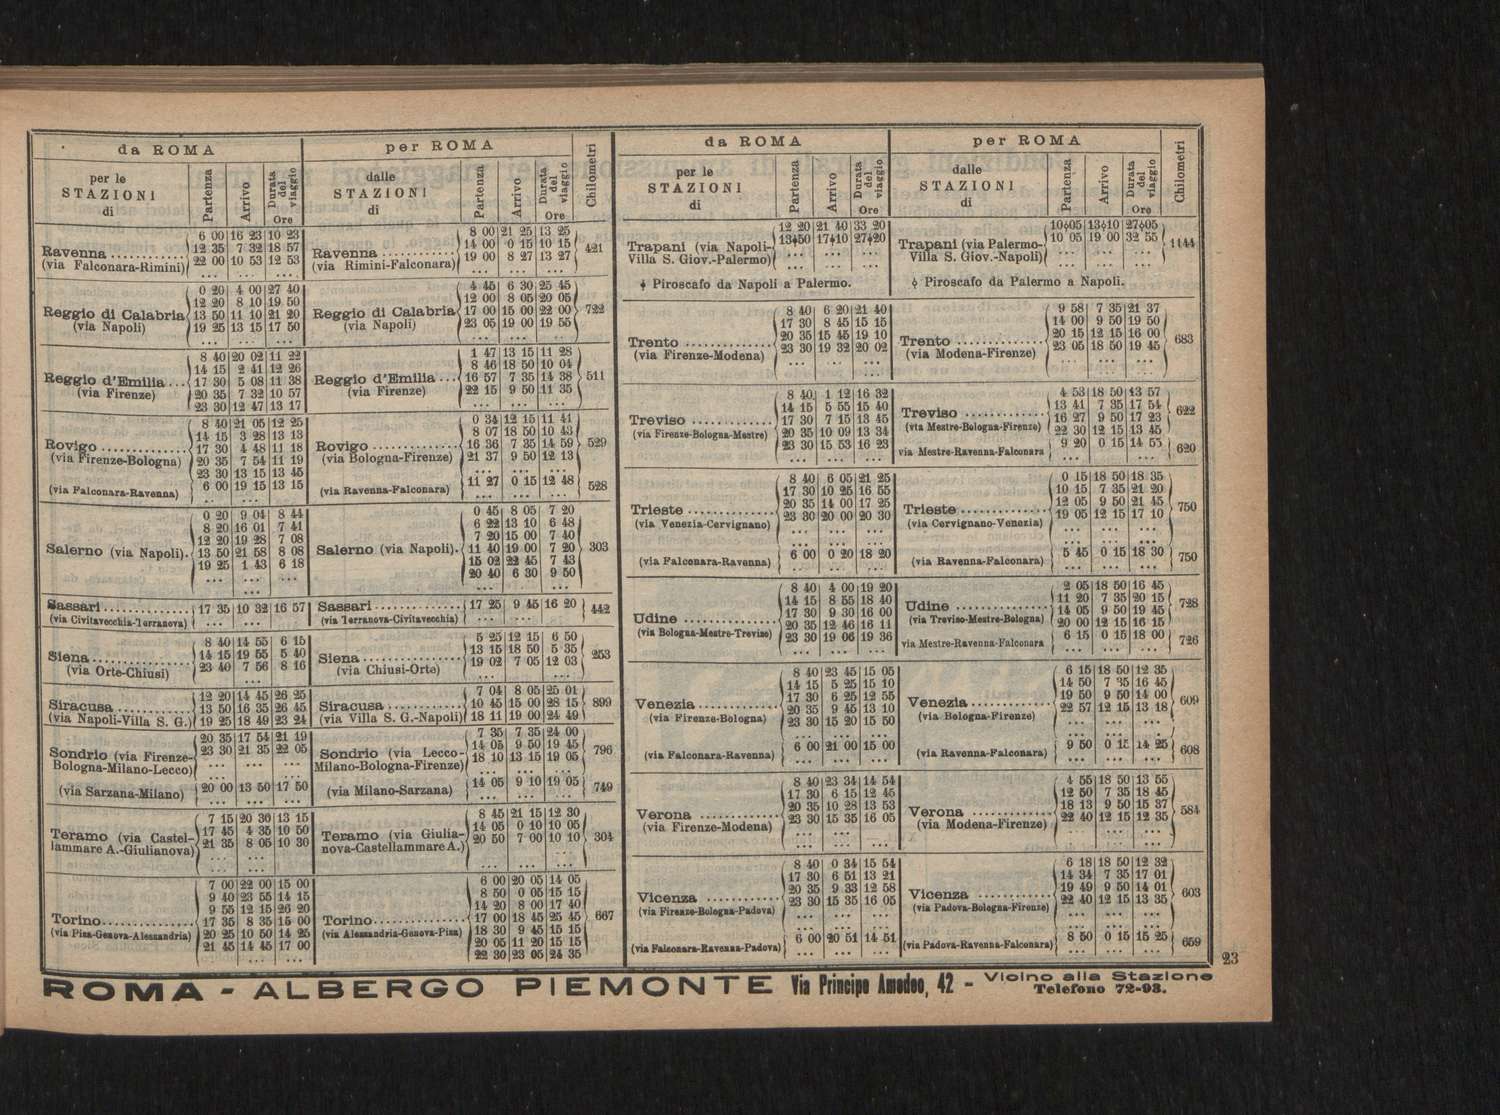 da ROMA
per ROMA
Chilometri
per le STAZIONI di
Partenza
Arrivo
Durata del viaggio Ore
dalle STAZIONI di
Partenza
Arrivo
Durata del viaggio Ore
Ravenna (via Falconara-Rimini)
6 00 16 23 10 23
12 35 7 32 18 57
22 00 10 53 12 53
Ravenna (via Rimini-Falconara)
8 00 21 25 13 25
14 00 0 15 10 15
19 00 8 27 13 27
421
Reggio di Calabria (via Napoli)
0 20 4 00 27 40
12 20 8 10 19 50
13 50 11 10 21 20
19 25 13 15 17 50
Reggio di Calabria (via Napoli)
4 45 6 30 25 45
12 00 8 05 20 05
17 00 15 00 22 00
23 05 19 00 19 55
722
Reggio d'Emilia (via Firenze)
8 40 20 02 11 22
14 15 2 41 12 26
17 30 5 08 11 38
20 35 7 32 10 57
23 30 12 47 13 17
Reggio d'Emilia (via Firenze)
1 47 13 15 11 28
8 46 18 50 10 04
16 57 7 35 14 38
22 15 9 50 11 35
511
Rovigo (via Firenze-Bologna)
8 40 21 05 12 25
14 15 3 28 13 13
17 30 4 48 11 18
20 35 7 54 11 19
23 30 13 15 13 45
(via Falconara-Ravenna)
6 00 19 15 13 15
Rovigo (via Bologna-Firenze)
0 34 12 15 11 41
8 07 18 50 10 43
16 36 7 35 14 59
21 37 9 50 12 13
529
(via Ravenna-Falconara)
11 27 0 15 12 48
528
Salerno (via Napoli).
0 20 9 04 8 44
8 20 16 01 7 41
12 20 19 28 7 08
13 50 21 58 8 08
19 25 1 43 6 18
Salerno (via Napoli).
0 45 8 05 7 20
6 22 13 10 6 48
7 20 15 00 7 40
11 40 19 00 7 20
15 02 22 45 7 43
20 40 6 30 9 50
303
Sassari (via Civitavecchia-Terranova)
17 35 10 32 16 57
Sassari (via Terranova-Civitavecchia)
17 25 9 45 16 20
442
Siena (via Orte-Chiusi)
8 40 14 55 6 15
14 15 19 55 5 40
23 40 7 56 8 16
Siena (via Chiusi-Orte)
5 25 12 15 6 50
13 15 18 50 5 35
19 02 7 05 12 03
253
Siracusa (via Napoli-Villa S. G.)
12 20 14 45 26 25
13 50 16 35 26 45
19 25 18 49 23 24
Siracusa (via Villa S. G.-Napoli)
7 04 8 05 25 01
10 45 15 00 28 15
18 11 19 00 24 49
899
Sondrio (via Firenze-Bologna-Milano-Lecco)
20 35 17 54 21 19
23 30 21 35 22 05
Sondrio (via Lecco-Milano-Bologna-Firenze)
7 35 7 35 24 00
14 05 9 50 19 45
18 10 13 15 19 05
796
(via Sarzana-Milano)
20 00 13 50 17 50
(via Milano-Sarzana)
14 05 9 10 19 05
749
Teramo (via Castellammare A.-Giulianova)
7 15 20 30 13 15
17 45 4 35 10 50
21 35 8 05 10 30
Teramo (via Giulianova-Castellammare A.)
8 45 21 15 12 30
14 05 0 10 10 05
20 50 7 00 10 10
304
Torino (via Pisa-Genova-Alessandria)
7 00 22 00 15 00
9 40 23 55 14 15
9 55 12 15 26 20
17 35 8 35 15 00
20 25 10 50 14 25
21 45 14 45 17 00
Torino (via Alessandria-Genova-Pisa)
6 00 20 05 14 05
8 50 0 05 15 15
14 20 8 00 17 40
17 00 18 45 25 45
18 30 9 45 15 15
20 05 11 20 15 15
22 30 23 05 24 35
667
da ROMA
per ROMA
Chilometri
per le STAZIONI di
Partenza
Arrivo
Durata del viaggio Ore
dalle STAZIONI di
Partenza
Arrivo
Durata del viaggio Ore
Trapani (via Napoli-Villa S. Giov.-Palermo)
12 20 21 40 33 20
13⸸50 17⸸10 27⸸20
Trapani (via Palermo-Villa S. Giov.-Napoli)
10⸸05 13⸸10 27⸸05
10 05 19 00 32 55
1144
⸸ Piroscafo da Napoli a Palermo.
⸸ Piroscafo da Palermo a Napoli.
Trento (via Firenze-Modena)
8 40 6 20 21 40
17 30 8 45 15 15
20 35 15 45 19 10
23 30 19 32 20 02
Trento (via Modena-Firenze)
9 58 7 35 21 37
14 00 9 50 19 50
20 15 12 15 16 00
23 05 18 50 19 45
683
Treviso (via Firenze-Bologna-Mestre)
8 40 1 12 16 32
14 15 5 55 15 40
17 30 7 15 13 45
20 35 10 09 13 34
23 30 15 53 16 23
Treviso (via Mestre-Bologna-Firenze)
4 53 18 50 13 57
13 41 7 35 17 54
16 27 9 50 17 23
22 30 12 15 13 45
622
via Mestre-Ravenna-Falconara
9 20 0 15 14 55
620
Trieste (via Venezia-Cervignano)
8 40 6 05 21 25
17 30 10 25 16 55
20 35 14 00 17 25
23 30 20 00 20 30
Trieste (via Cervignano-Venezia)
0 15 18 50 18 35
10 15 7 35 21 20
12 05 9 50 21 45
19 05 12 15 17 10
750
(via Falconara-Ravenna)
6 00 0 20 18 20
(via Ravenna-Falconara)
5 45 0 15 18 30
750
Udine (via Bologna-Mestre-Treviso)
8 40 4 00 19 20
14 15 8 55 18 40
17 30 9 30 16 00
20 35 12 46 16 11
23 30 19 06 19 36
Udine (via Treviso-Mestre-Bologna)
2 05 18 50 16 45
11 20 7 35 20 15
14 05 9 50 19 45
20 00 12 15 16 15
728
via Mestre-Ravenna-Falconara
6 15 0 15 18 00
726
Venezia (via Firenze-Bologna)
8 40 23 45 15 05
14 15 5 25 15 10
17 30 6 25 12 55
20 35 9 45 13 10
23 30 15 20 15 50
Venezia (via Bologna-Firenze)
6 15 18 50 12 35
14 50 7 35 16 45
19 50 9 50 14 00
22 57 12 15 13 18
609
(via Falconara-Ravenna)
6 00 21 00 15 00
(via Ravenna-Falconara)
9 50 0 15 14 25
608
Verona (via Firenze-Modena)
8 40 23 34 14 54
17 30 6 15 12 45
20 35 10 28 13 53
23 30 15 35 16 05
Verona (via Modena-Firenze)
4 55 18 50 13 55
12 50 7 35 18 45
18 13 9 50 15 37
22 40 12 15 12 35
584
Vicenza (via Firenze-Bologna-Padova)
8 40 0 34 15 54
17 30 6 51 13 21
20 35 9 33 12 58
23 30 15 35 16 05
Vicenza (via Padova-Bologna-Firenze)
6 18 18 50 12 32
14 34 7 35 17 01
19 49 9 50 14 01
22 40 12 15 13 35
603
(via Falconara-Ravenna-Padova)
6 00 20 51 14 51
(via Padova-Ravenna-Falconara)
8 50 0 15 15 25
659
23
ROMA - ALBERGO PIEMONTE Via Principe Amedeo, 42 - Vicino alla Stazione
Telefono 72-93.